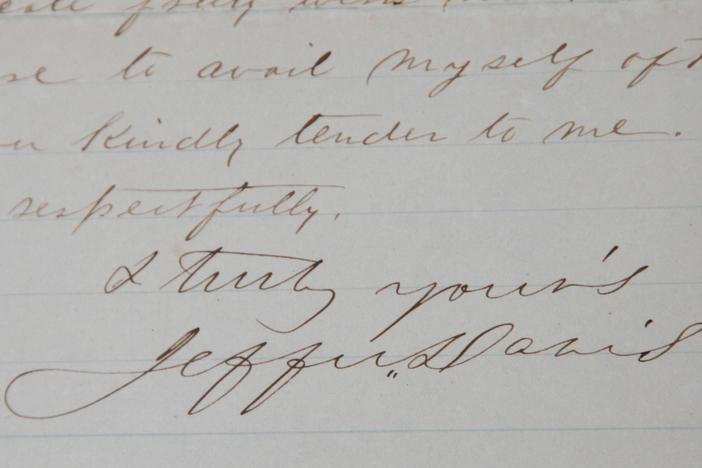 se to avail myself of t
u kindly tender to me.
respectfully.
& truly your's
Jeffn. Davis